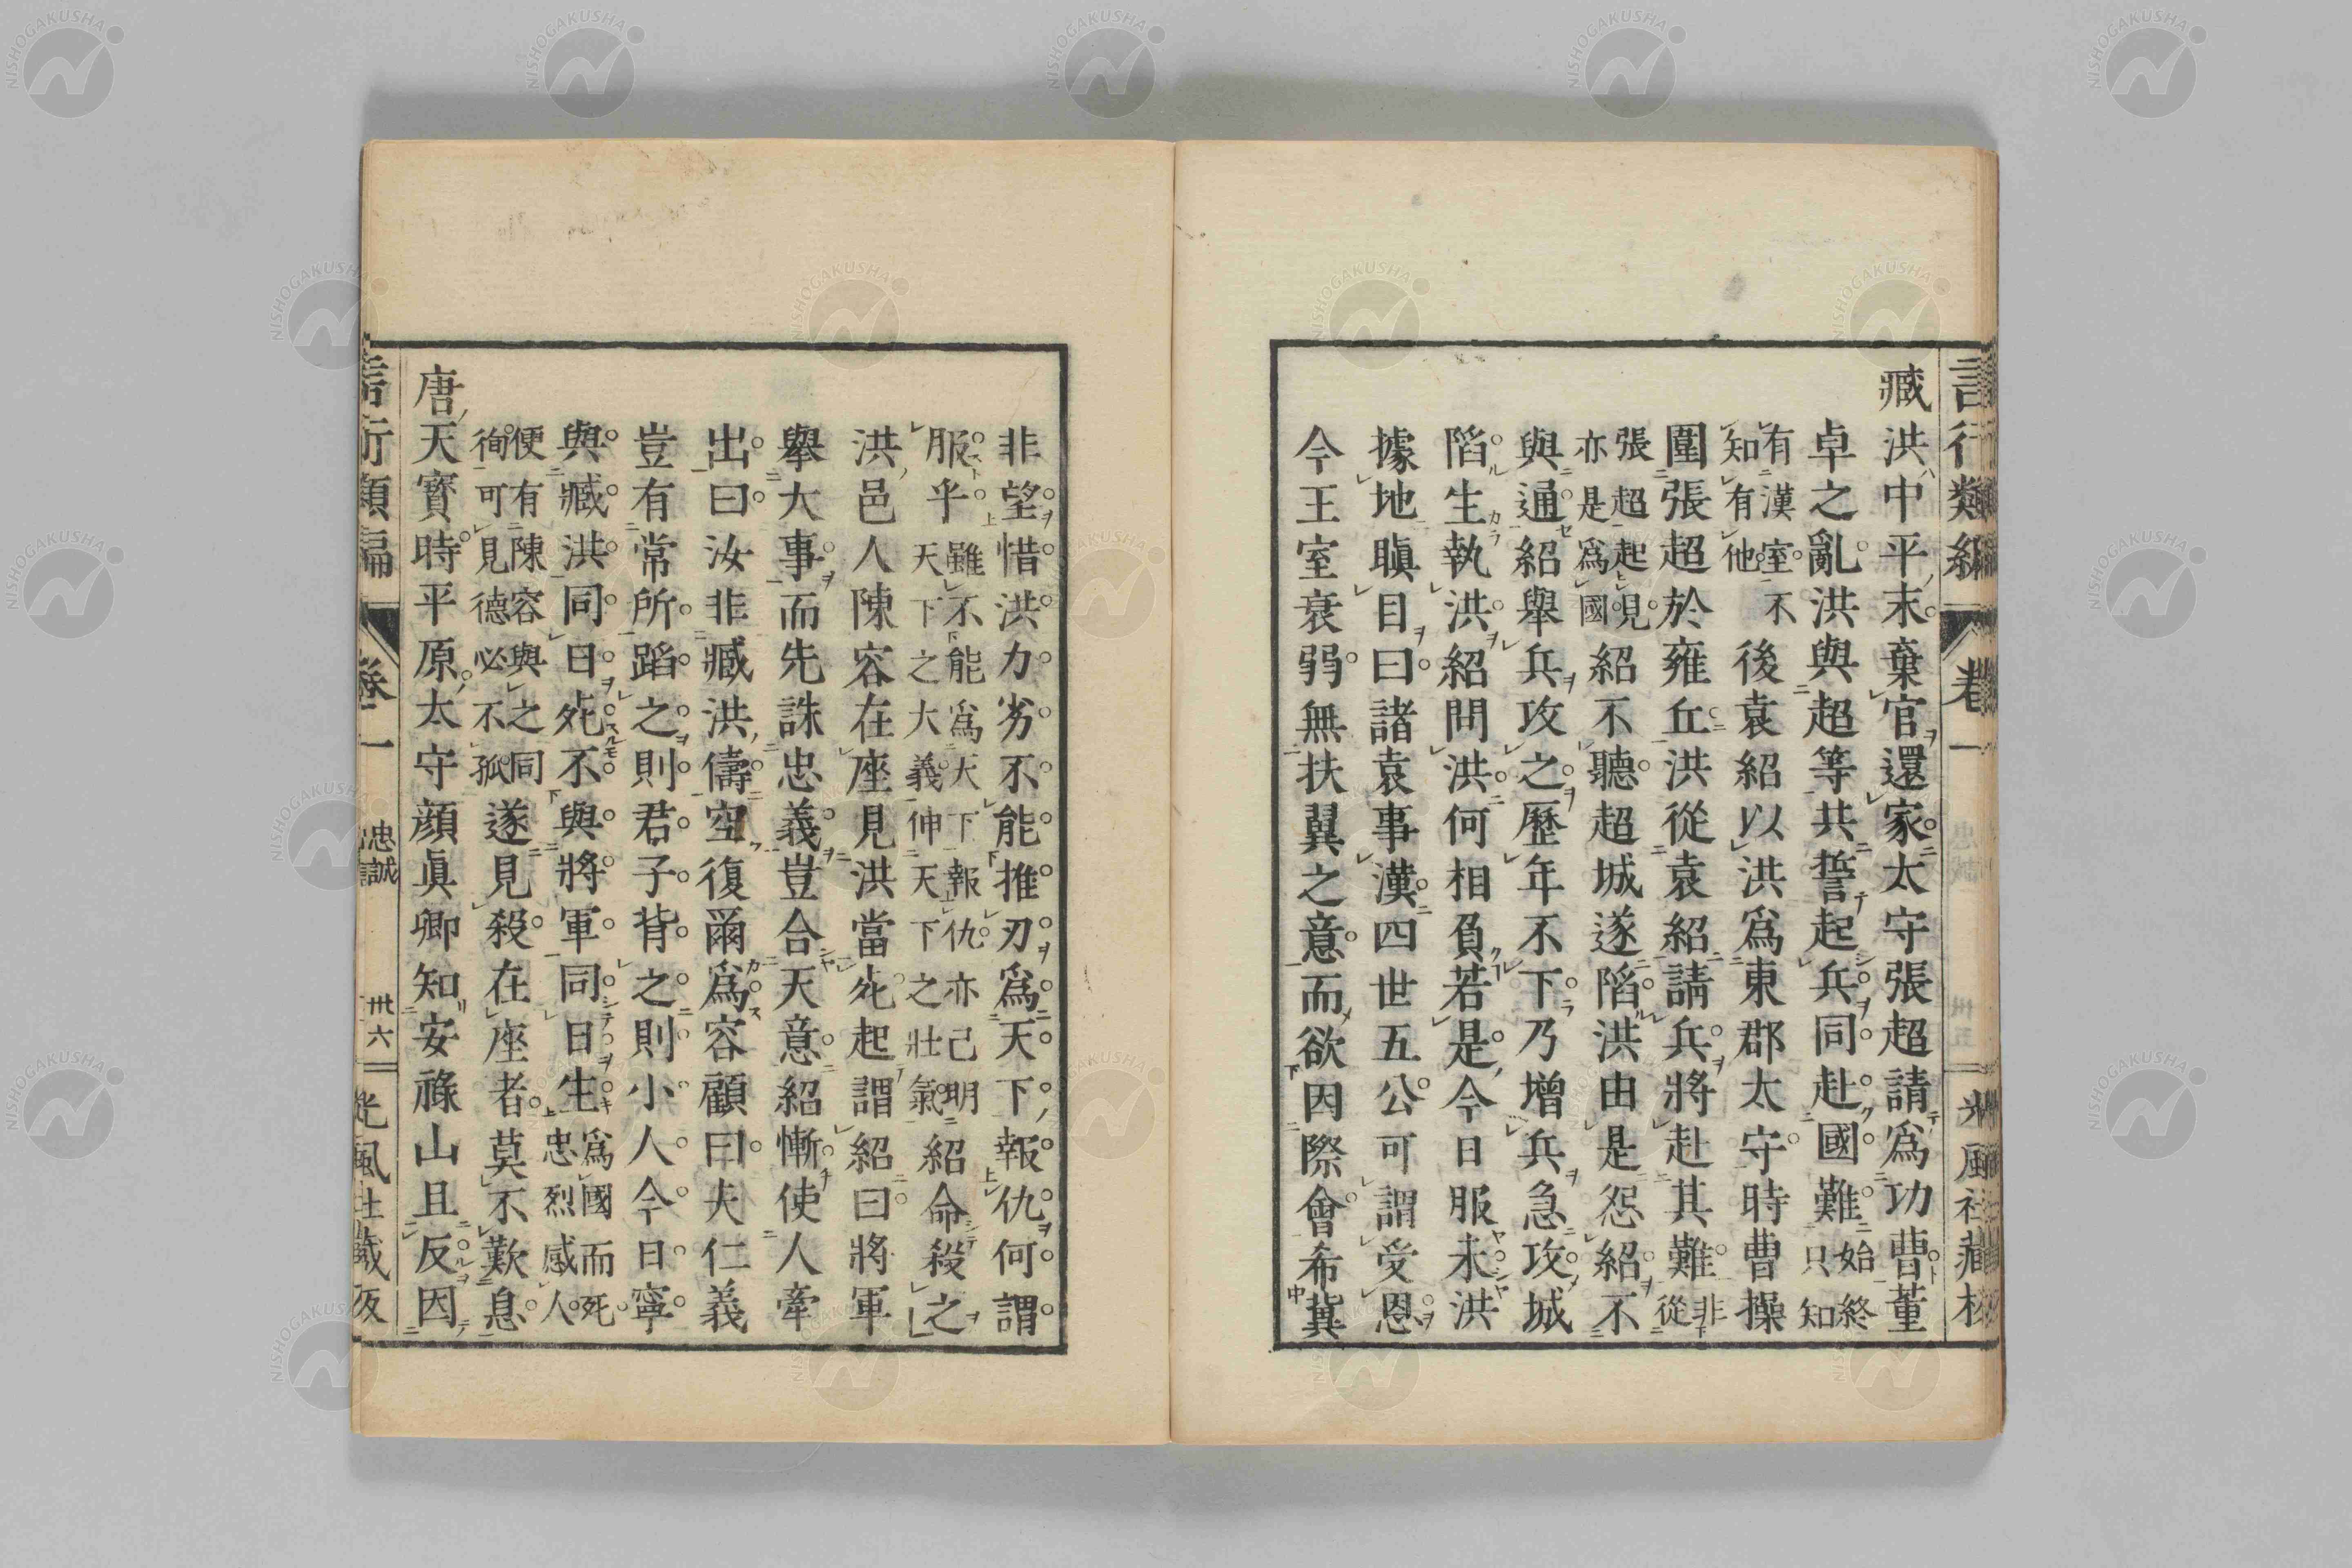 言行類編 卷一 光風社藏板
臧洪中平末棄官還家太守張超請爲功曹董
卓之亂洪與超等共誓起兵同赴國難始終只知
有漢室不知有他後袁紹以洪爲東郡太守時曹操
圍張超於雍丘洪從袁紹請兵將赴其難非從
張超起見亦是爲國紹不聽超城遂陷洪由是怨紹不
與通紹舉兵攻之歷年不下乃增兵急攻城
陷生執洪紹問洪何相負若是今日服未洪
據地瞋目曰諸袁事漢四世五公可謂受恩
今王室衰弱無扶翼之意而欲因際會希冀
非望惜洪力劣不能推刃爲天下報仇何謂
服乎雖不能爲天下報仇亦已明天下之大義伸天下之壯氣紹命殺之
洪邑人陳容在座見洪當死起謂紹曰將軍
舉大事而先誅忠義豈合天意紹慚使人牽
出曰汝非臧洪儔空復爾爲容顧曰夫仁義
豈有常所蹈之則君子背之則小人今日寧
與臧洪同日死不與將軍同日生爲國而死忠烈感人
便有陳容與之同徇可見德必不孤遂見殺在座者莫不歎息
唐天寶時平原太守顔眞卿知安祿山且反因
言行類編 卷一 忠誠 卅六 光風社藏板